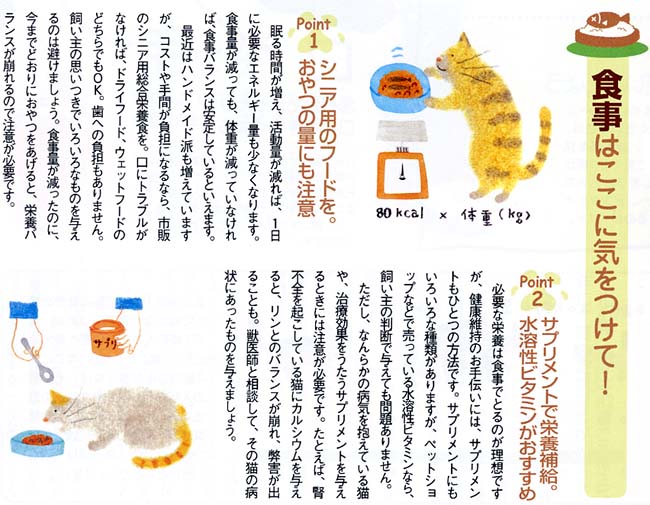 食事はここに気をつけて!
Point
1
シニア用のフードを。
おやつの量にも注意
眠る時間が増え、活動量が減れば、1日
に必要なエネルギー量も少なくなります。
食事量が減っても、体重が減っていなけれ
ば、食事バランスは安定しているといえます。
最近はハンドメイド派も増えています
が、コストや手間が負担になるなら、市販
のシニア用総合栄養食を。口にトラブルが
なければ、ドライフード、ウェットフードの
どちらでもOK。歯への負担もありません。
飼い主の思いつきでいろいろなものを与え
るのは避けましょう。食事量が減ったのに、
今までどおりにおやつをあげると、栄養バ
ランスが崩れるので注意が必要です。
80 kcal × 体重(kg)
Point
2
サプリメントで栄養補給。
水溶性ビタミンがおすすめ
必要な栄養は食事でとるのが理想です
が、健康維持のお手伝いには、サプリメン
トもひとつの方法です。サプリメントにも
いろいろな種類がありますが、ペットショ
ップなどで売っている水溶性ビタミンなら、
飼い主の判断で与えても問題ありません。
ただし、なんらかの病気を抱えている猫
や、治療効果をうたうサプリメントを与え
るときには注意が必要です。たとえば、腎
不全を起こしている猫にカルシウムを与え
ると、リンとのバランスが崩れ、弊害が出
ることも。獣医師と相談して、その猫の病
状にあったものを与えましょう。
サプリ